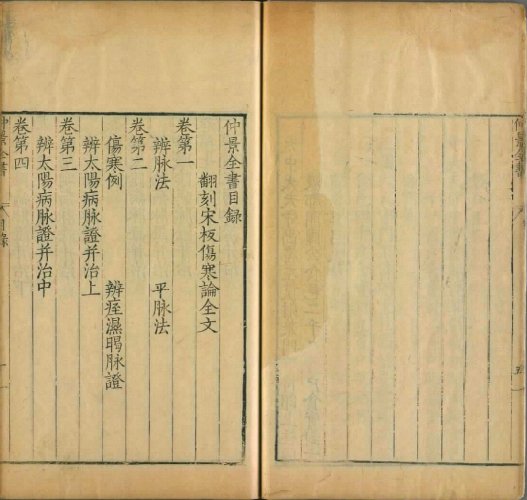 仲景全書目録
翻刻宋板傷寒論全文
卷第一
辨脉法 平脉法
卷第二
傷寒例 辨痓濕暍脉證
辨太陽病脉證并治上
卷第三
辨太陽病脉證并治中
卷第四
仲景全書 目録